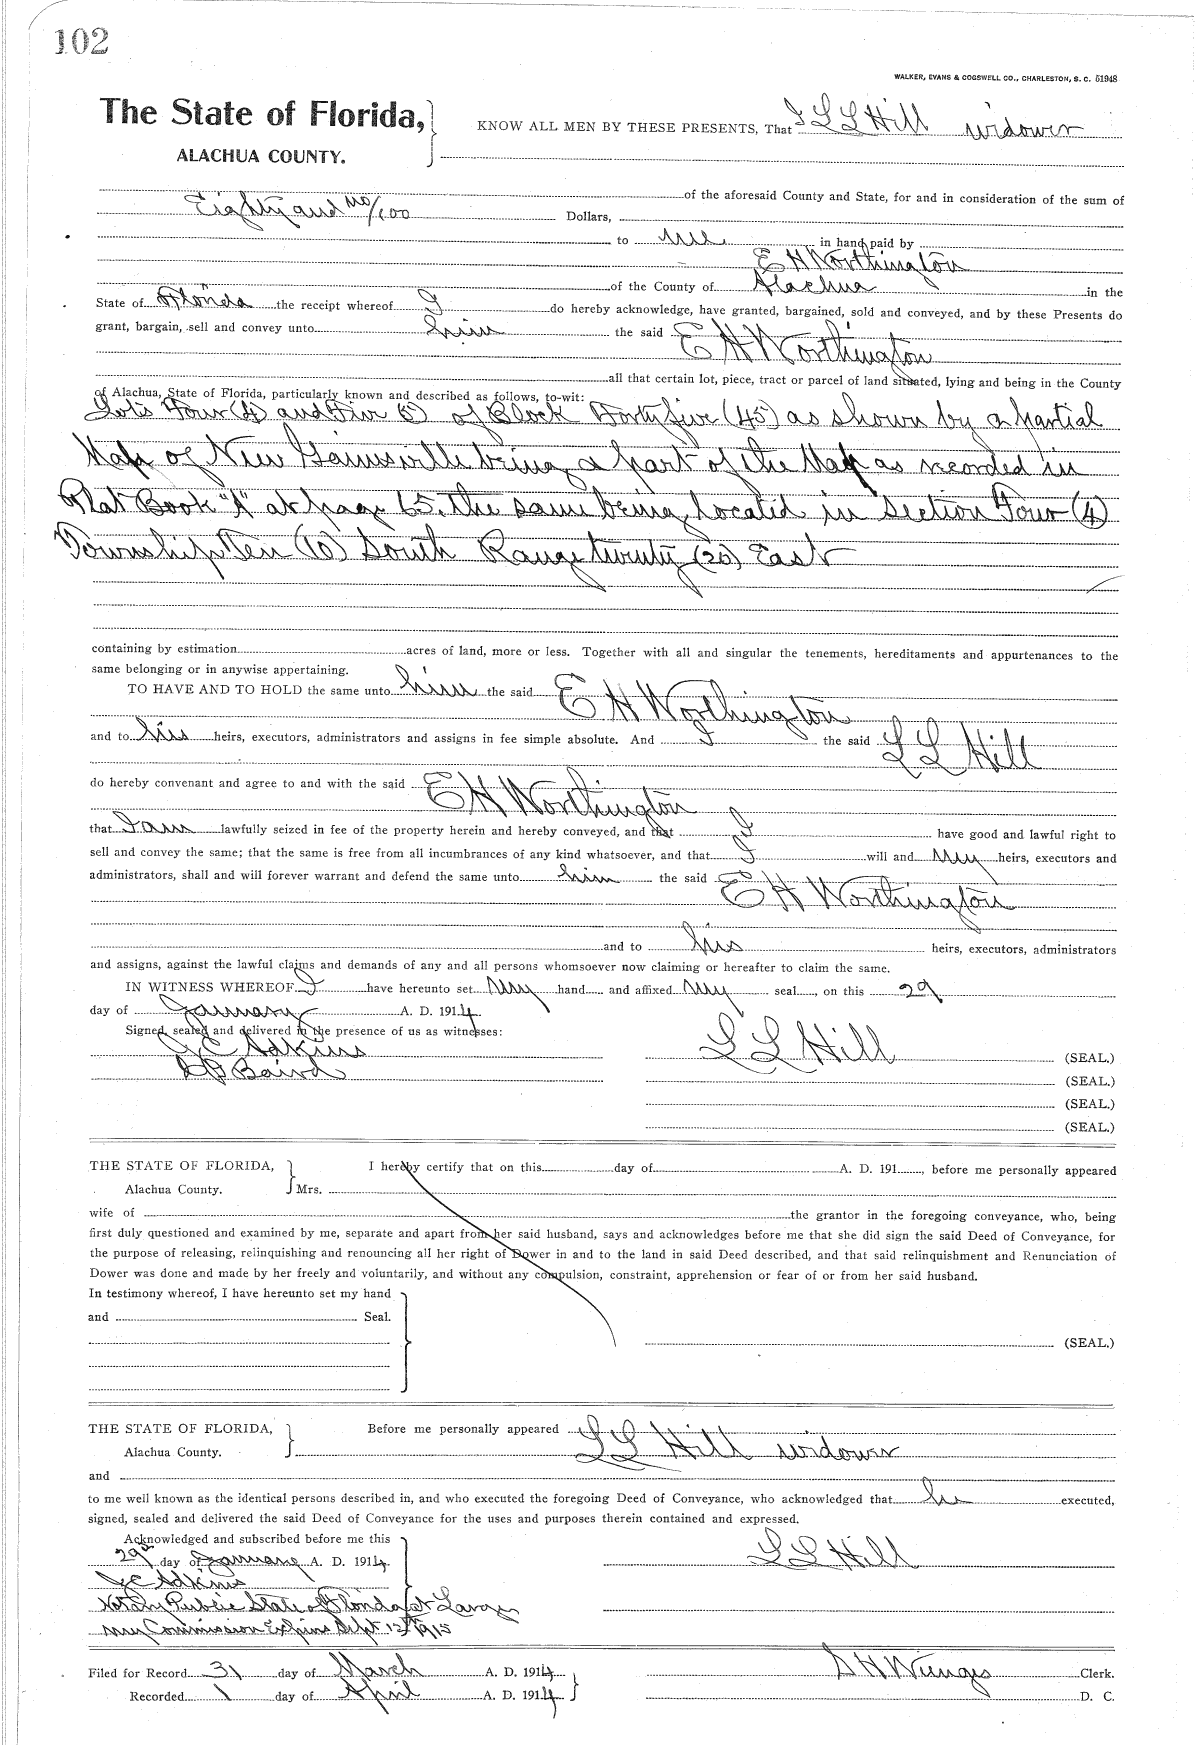 102
WALKER, EVANS & COGSWELL CO., CHARLESTON, S. C. 51948
The State of Florida,
ALACHUA COUNTY.
KNOW ALL MEN BY THESE PRESENTS, That I L L Hill widower
of the aforesaid County and State, for and in consideration of the sum of
Eighty and no/100 Dollars,
to me in hand paid by
E H Worthington
of the County of Alachua in the
State of Florida the receipt whereof I do hereby acknowledge, have granted, bargained, sold and conveyed, and by these Presents do
grant, bargain, sell and convey unto him the said E H Worthington
all that certain lot, piece, tract or parcel of land situated, lying and being in the County
of Alachua, State of Florida, particularly known and described as follows, to-wit:
Lots Four (4) and Five (5) of Block Forty five (45) as shown by a partial
Map of New Gainsville being a part of the Map as recorded in
Plat Book "A" at page 65. The same being located in Section Four (4)
Township Ten (10) South Range twenty (20) East
containing by estimation acres of land, more or less. Together with all and singular the tenements, hereditaments and appurtenances to the
same belonging or in anywise appertaining.
TO HAVE AND TO HOLD the same unto him the said E H Worthington
and to his heirs, executors, administrators and assigns in fee simple absolute. And I the said L L Hill
do hereby convenant and agree to and with the said E H Worthington
that I am lawfully seized in fee of the property herein and hereby conveyed, and that I have good and lawful right to
sell and convey the same; that the same is free from all incumbrances of any kind whatsoever, and that I will and my heirs, executors and
administrators, shall and will forever warrant and defend the same unto him the said E H Worthington
and to his heirs, executors, administrators
and assigns, against the lawful claims and demands of any and all persons whomsoever now claiming or hereafter to claim the same.
IN WITNESS WHEREOF I have hereunto set my hand and affixed my seal, on this 29
day of January A. D. 1914.
Signed, sealed and delivered in the presence of us as witnesses:
J C Adkins L L Hill (SEAL.)
Baird (SEAL.)
(SEAL.)
(SEAL.)
THE STATE OF FLORIDA, I hereby certify that on this day of A. D. 191 , before me personally appeared
Alachua County. Mrs.
wife of the grantor in the foregoing conveyance, who, being
first duly questioned and examined by me, separate and apart from her said husband, says and acknowledges before me that she did sign the said Deed of Conveyance, for
the purpose of releasing, relinquishing and renouncing all her right of Dower in and to the land in said Deed described, and that said relinquishment and Renunciation of
Dower was done and made by her freely and voluntarily, and without any compulsion, constraint, apprehension or fear of or from her said husband.
In testimony whereof, I have hereunto set my hand
and Seal.
(SEAL.)
THE STATE OF FLORIDA, Before me personally appeared L L Hill widower
Alachua County.
and
to me well known as the identical persons described in, and who executed the foregoing Deed of Conveyance, who acknowledged that he executed,
signed, sealed and delivered the said Deed of Conveyance for the uses and purposes therein contained and expressed.
Acknowledged and subscribed before me this
29th day of January A. D. 1914. L L Hill
J C Adkins
Notary Public State of Florida at Large
My Commission Expires Sept 12th 1915
Filed for Record 31 day of March A. D. 1914 S H Wienges Clerk.
Recorded 1 day of April A. D. 1914 D. C.